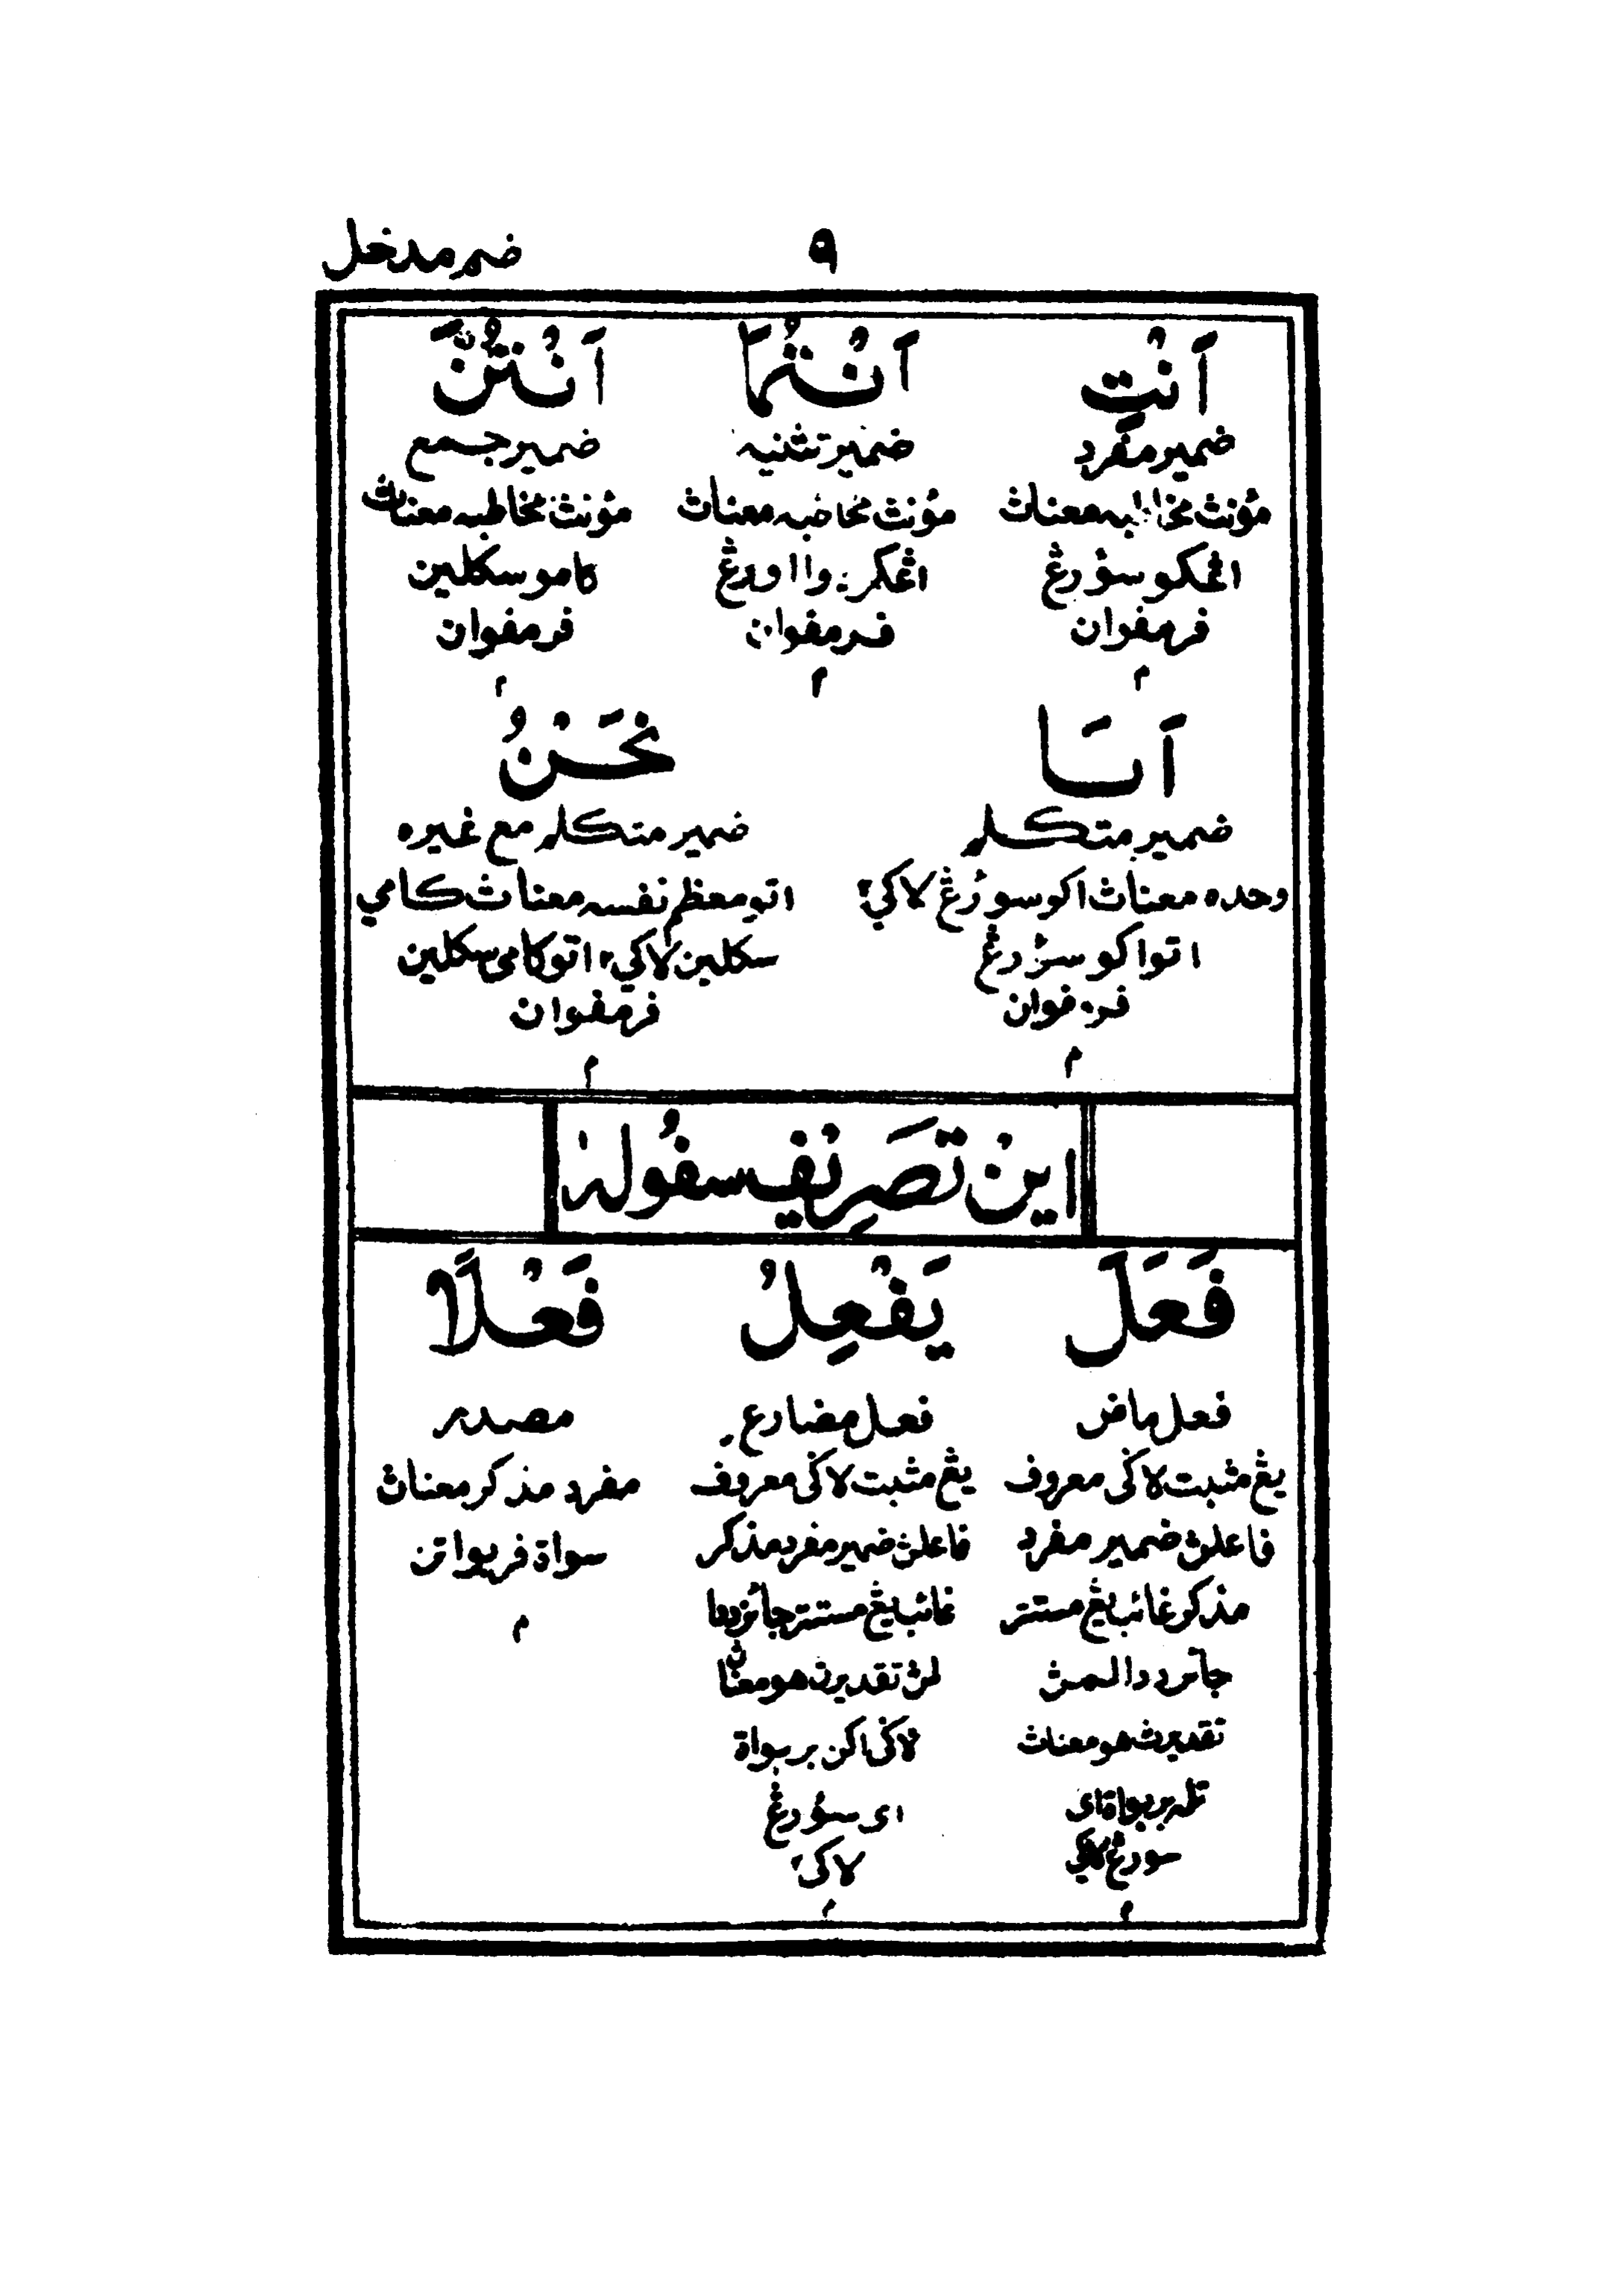 ٩
ضم مدخل
اَنْتِ
ضمير مفرد
مؤنث مخاطبه معناڽ
اڠكو سؤرڠ
فرمفوان
م
اَنْتُمَا
ضمير تثنيه
مؤنث مخاطبه معناڽ
اڠكو دوا اورڠ
فرمفوان
م
اَنْتُنَّ
ضمير جمع
مؤنث مخاطبه معناڽ
كامو سكلين
فرمفوان
م
اَنَا
ضمير متكلم
وحده معناڽ اكو سؤرڠ لاكي٢
اتو اكو سؤرڠ
فرمفوان
م
نَحْنُ
ضمير متكلم مع غيره
اتو معظم نفسه معناڽ كامي
سكلين لاكي٢ اتو كامي سكلين
فرمفوان
م
اينْ تَصْرِيْف سفُولهْ
فَعَلَ
فعل ماض
يڠ مثبت لاڬي معروف
فاعلڽ ضمير مفرد
مذكر غائب يڠ مستتر
جائز د دالمڽ
تقديرڽ هو معناڽ
تله بربواة اي
سورڠ لاكي
م
يَفْعِلُ
فعل مضارع
يڠ مثبت لاڬي معروف
فاعلڽ ضمير مفرد مذكر
غائب يڠ مستتر جائز ددا
لمڽ تقديرڽ هو معناڽ
لاڬي اكن بربواة
اي سؤرڠ
لاكي٢
م
فَعْلًا
مصدر
مفرد مذكر معناڽ
سواة فربواتن
م